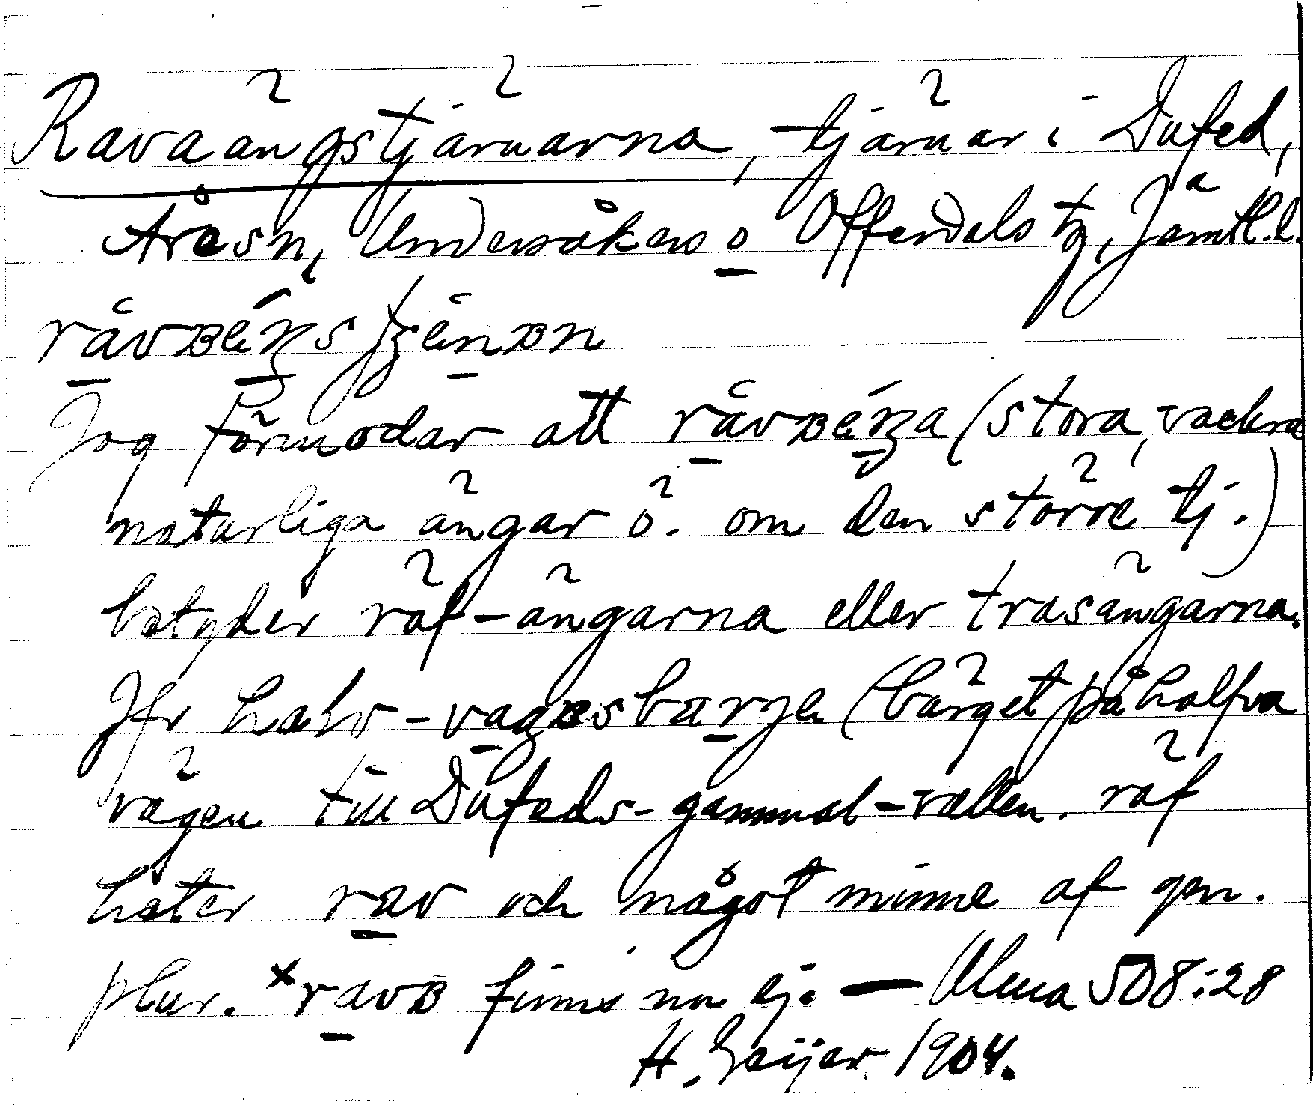 Rävaängstjärnarna, tjärnar i Dufed,
Åre sn, Undersåkers o Offerdals tg, Jämtl. l.
råvʙéŋsʃɛ̄nʙn
Jag förmodar att råvʙéŋa (stora, vackra
naturliga ängar ö. om den större tj.)
betyder räf-ängarna eller träsängarna.
Jfr halv-vagɴsbarje (bärget på halfva
vägen till Dufeds-gammal-vallen. räf
heter rav och något minne af gen.
plur. *ravʙ finns nu ej. — Ulma 508:28
H. Geijer 1904.